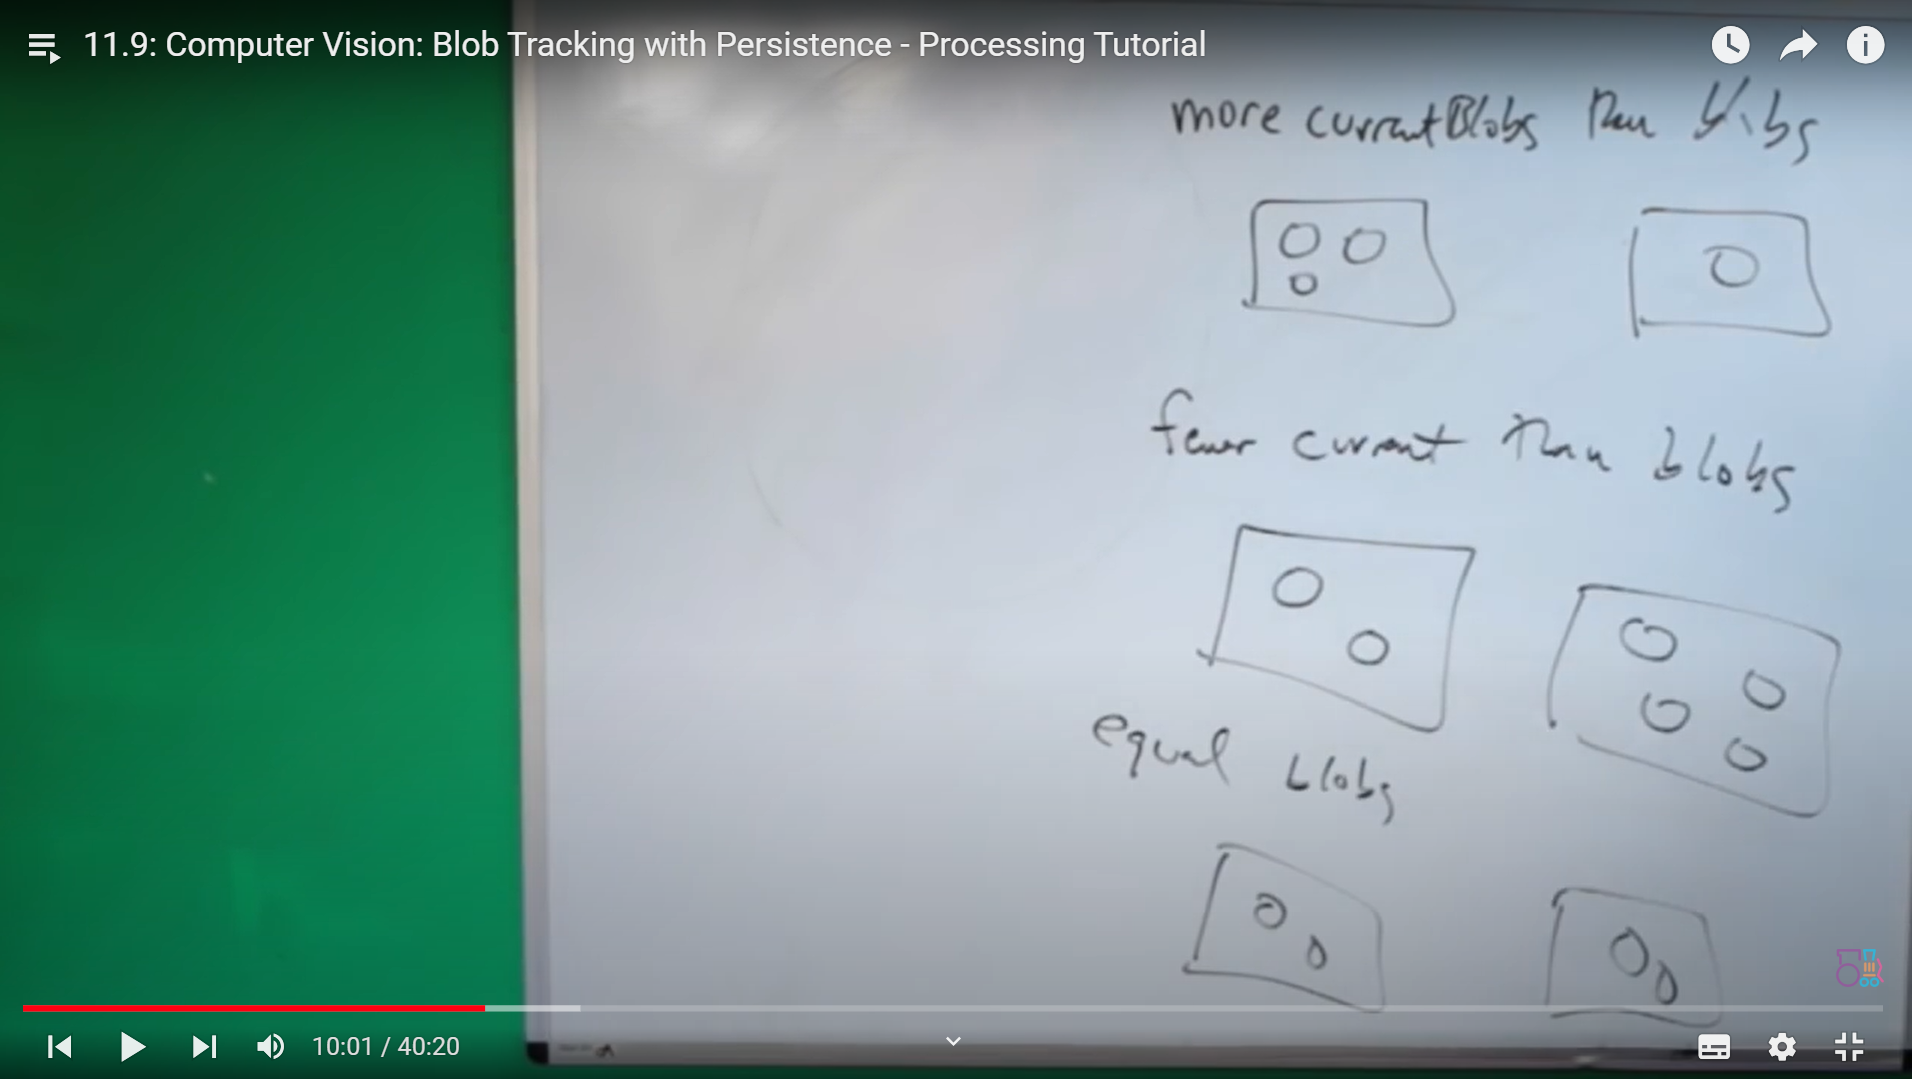 11.9: Computer Vision: Blob Tracking with Persistence - Processing Tutorial
more currentBlobs than blobs
fewer current than blobs
equal blobs
10:01 / 40:20